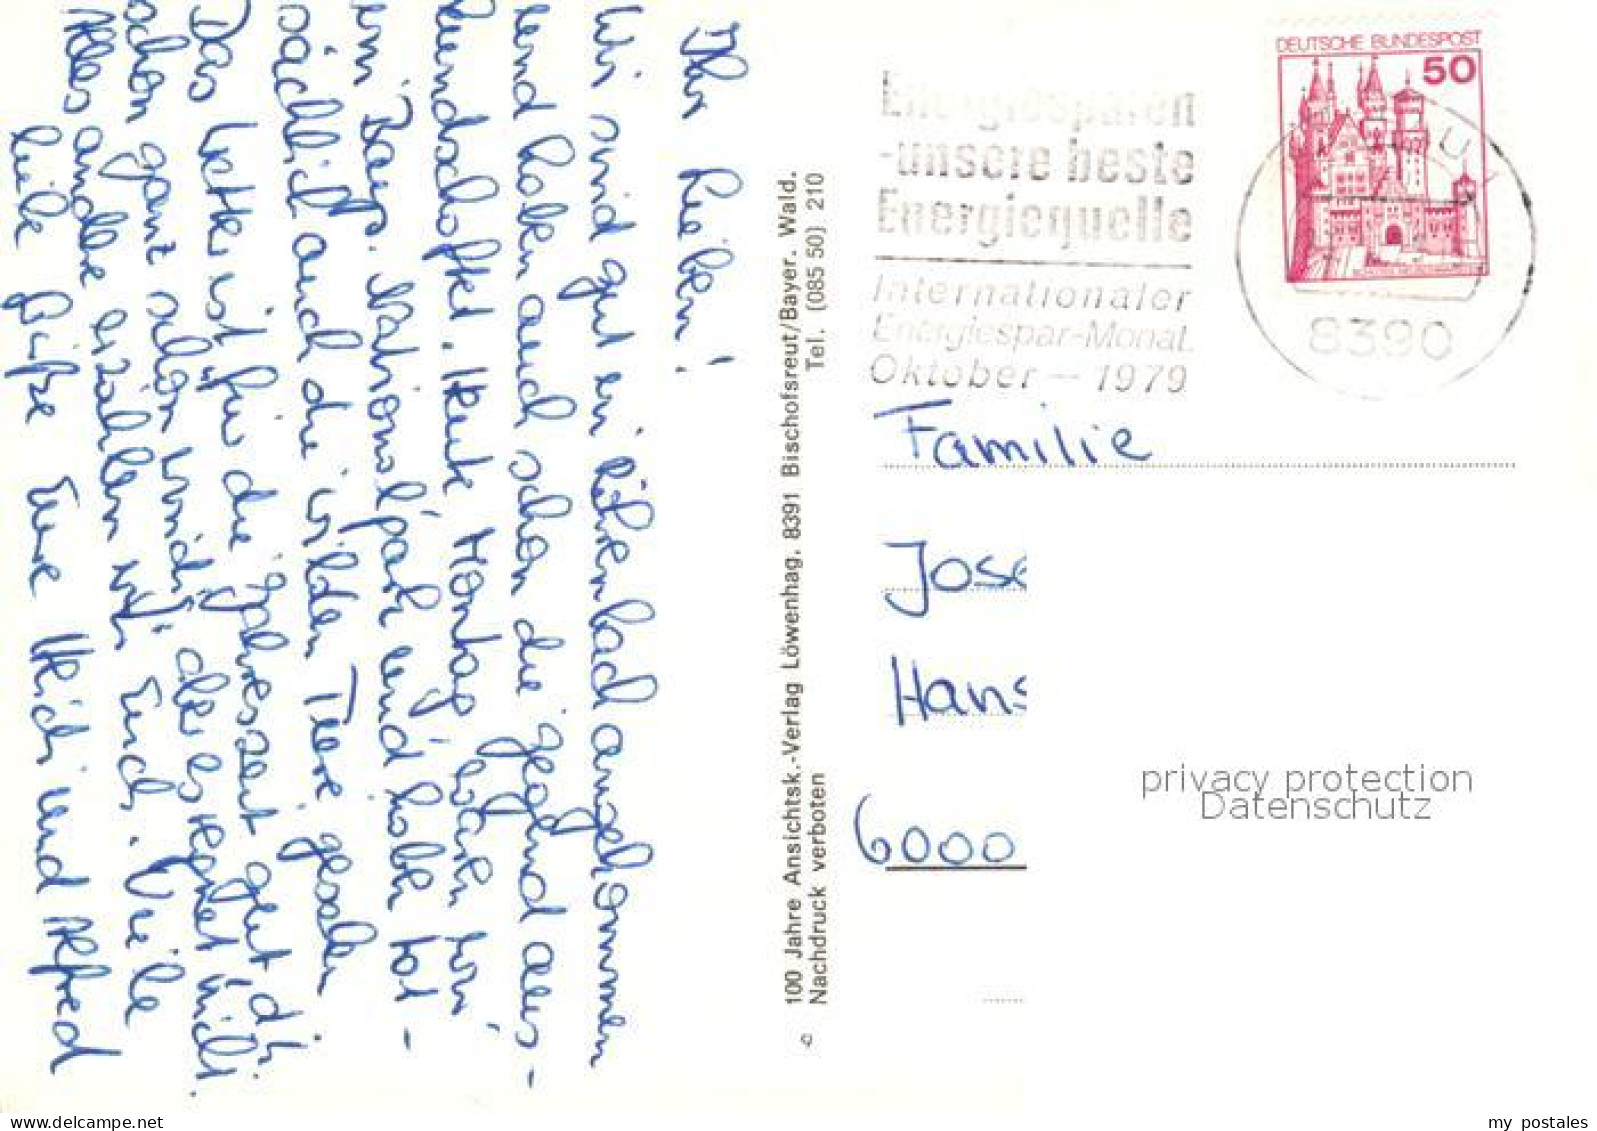 Ihr Lieben!
Wir sind gut in Röhrnbach angekommen
und haben auch schon die Gegend aus-
kundschaftet. Heute Montag waren wir
im Bayr. Nationalpark und haben tat-
sächlich auch die wilden Tiere gesehen
Das Wetter ist für die Jahreszeit gut d.h.
schon ganz schön windig aber es regnet nicht.
Alles andere erzählen wir Euch. Viele
liebe Grüße Eure Heidi und Alfred
100 Jahre Ansichtsk.-Verlag Löwenhag, 8391 Bischofsreut/Bayer. Wald.
Nachdruck verboten Tel. (085 50) 210
DEUTSCHE BUNDESPOST
50
Energiesparen
-unsere beste
Energiequelle
Internationaler
Energiespar-Monat
Oktober - 1979
8390
Familie
Jose
Hans
6000
privacy protection
Datenschutz
my postales